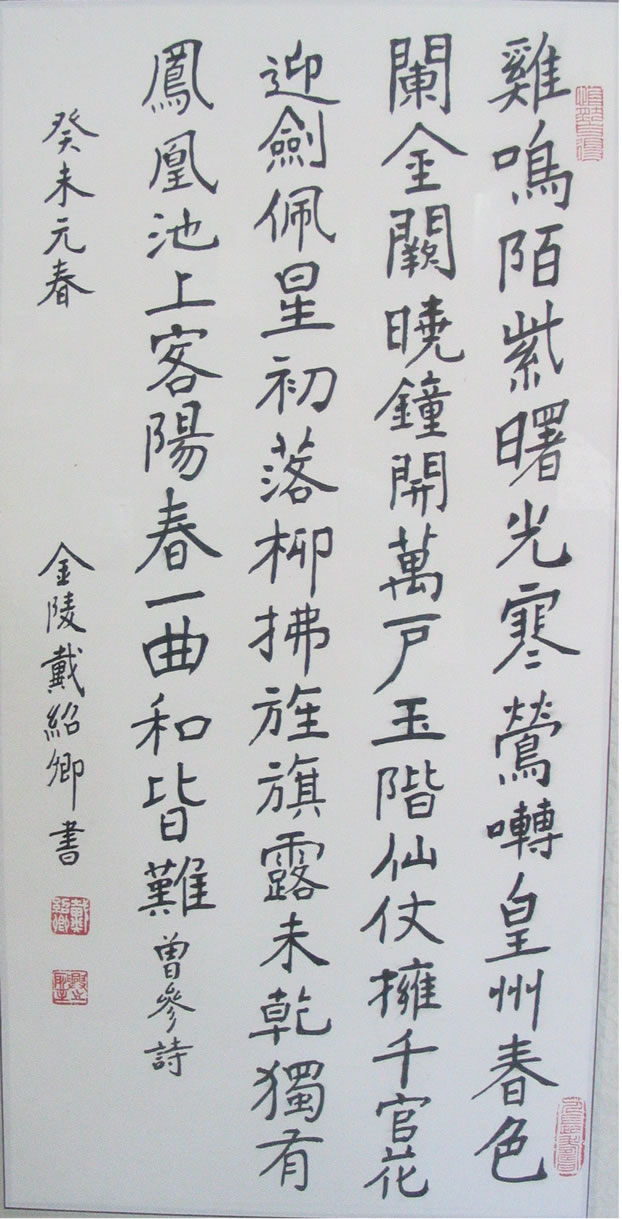 雞鳴陌紫曙光寒鶯囀皇州春色
闌金闕曉鐘開萬戶玉階仙仗擁千官花
迎劍佩星初落柳拂旌旗露未乾獨有
鳳凰池上客陽春一曲和皆難曾參詩
癸未元春 金陵戴紹卿書
戴紹卿